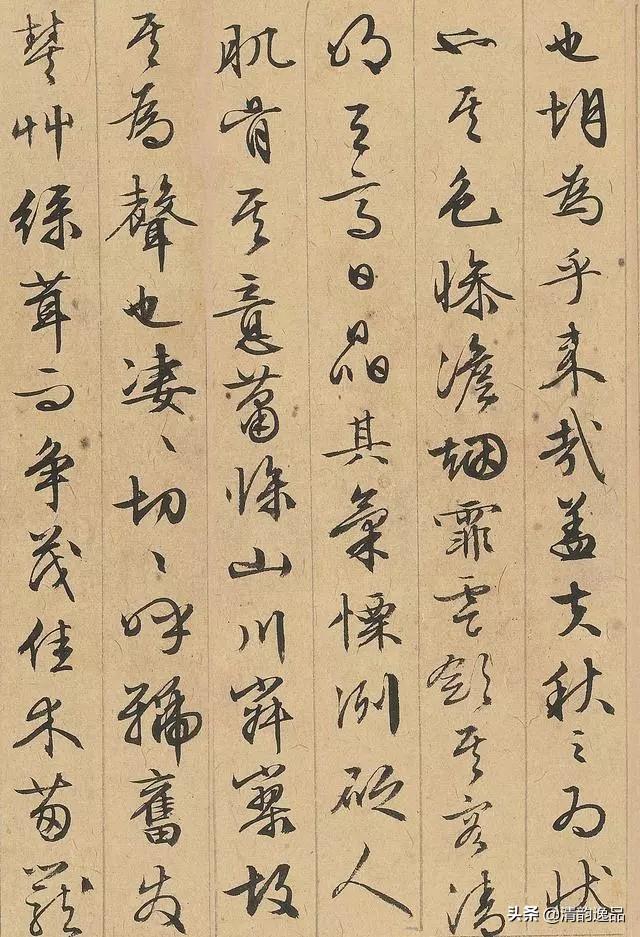 也胡為乎来哉盖夫秋之為状
也其色惨澹烟霏雲斂其容清
明天高日晶其氣慄冽砭人
肌骨其意蕭條山川寂寥故
其為聲也凄〻切〻呼號奮发
豐草綠茸而争茂佳木葱蘢
头条 @清韵逸品